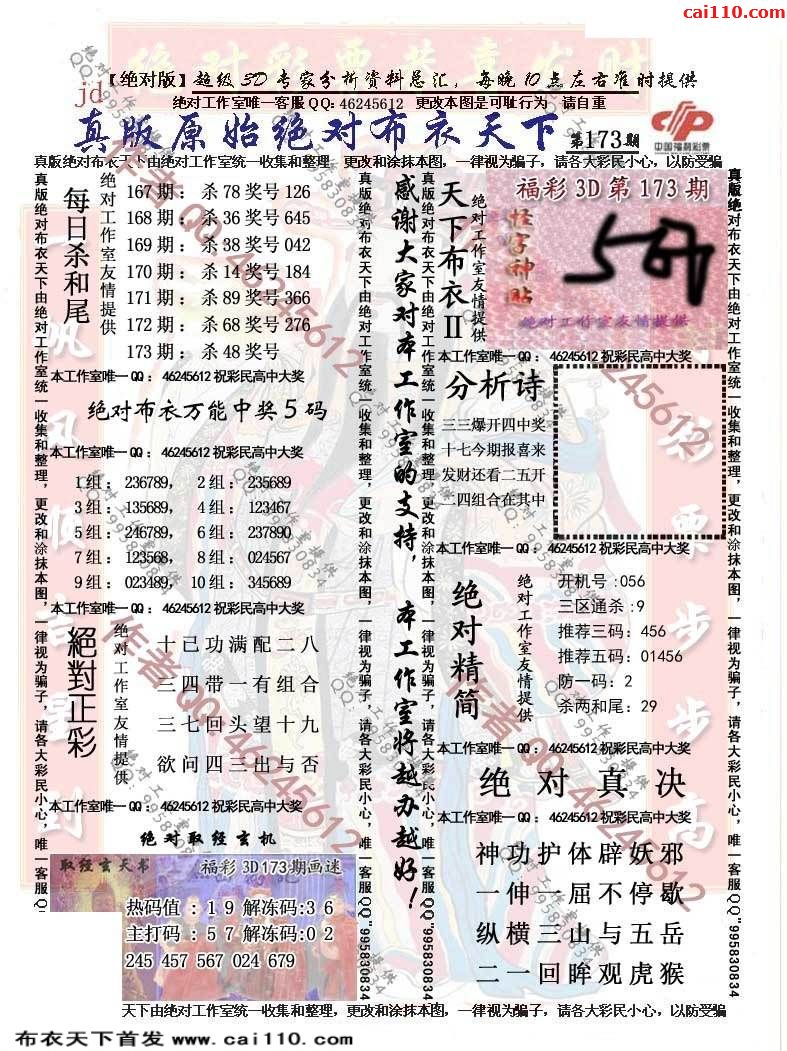 cai110.com
【绝对版】超级3D专家分析资料总汇，每晚10点左右准时提供
jd
绝对工作室唯一客服QQ：46245612 更改本图是可耻行为 请自重
真版原始绝对布衣天下 第173期
中国福利彩票
真版绝对布衣天下由绝对工作室统一收集和整理，更改和涂抹本图，一律视为骗子，请各大彩民小心，以防受骗
每日杀和尾
绝对工作室友情提供
167期：杀78奖号126
168期：杀36奖号645
169期：杀38奖号042
170期：杀14奖号184
171期：杀89奖号366
172期：杀68奖号276
173期：杀48奖号
本工作室唯一QQ：46245612祝彩民高中大奖
绝对布衣万能中奖5码
本工作室唯一QQ：46245612祝彩民高中大奖
1组：236789，2组：235689
3组：135689，4组：123467
5组：246789，6组：237890
7组：123568，8组：024567
9组：023489，10组：345689
本工作室唯一QQ：46245612祝彩民高中大奖
絕對正彩
绝对工作室友情提供
十己功满配二八
三四带一有组合
三七回头望十九
欲问四三出与否
本工作室唯一QQ：46245612祝彩民高中大奖
绝对取经玄机
取经玄天书
福彩3D173期画迷
热码值：19解冻码:36
主打码：57解冻码:02
245 457 567 024 679
感谢大家对本工作室的支持，本工作室将越办越好！
天下布衣II
绝对工作室友情提供
福彩3D第173期
怪字神贴
绝对工作室友情提供
本工作室唯一QQ：46245612祝彩民高中大奖
分析诗
三三爆开四中奖
十七今期报喜来
发财还看二五开
二四组合在其中
本工作室唯一QQ：46245612祝彩民高中大奖
绝对精简
绝对工作室友情提供
开机号:056
三区通杀:9
推荐三码:456
推荐五码:01456
防一码:2
杀两和尾:29
本工作室唯一QQ：46245612祝彩民高中大奖
绝对真决
本工作室唯一QQ：46245612祝彩民高中大奖
神功护体辟妖邪
一伸一屈不停歇
纵横三山与五岳
二一回眸观虎猴
真版绝对布衣天下由绝对工作室统一收集和整理，更改和涂抹本图，一律视为骗子，请各大彩民小心，唯一客服QQ"995830834
天下由绝对工作室统一收集和整理，更改和涂抹本图，一律视为骗子，请各大彩民小心，以防受骗
作者QQ:46245612
布衣天下首发 www.cai110.com